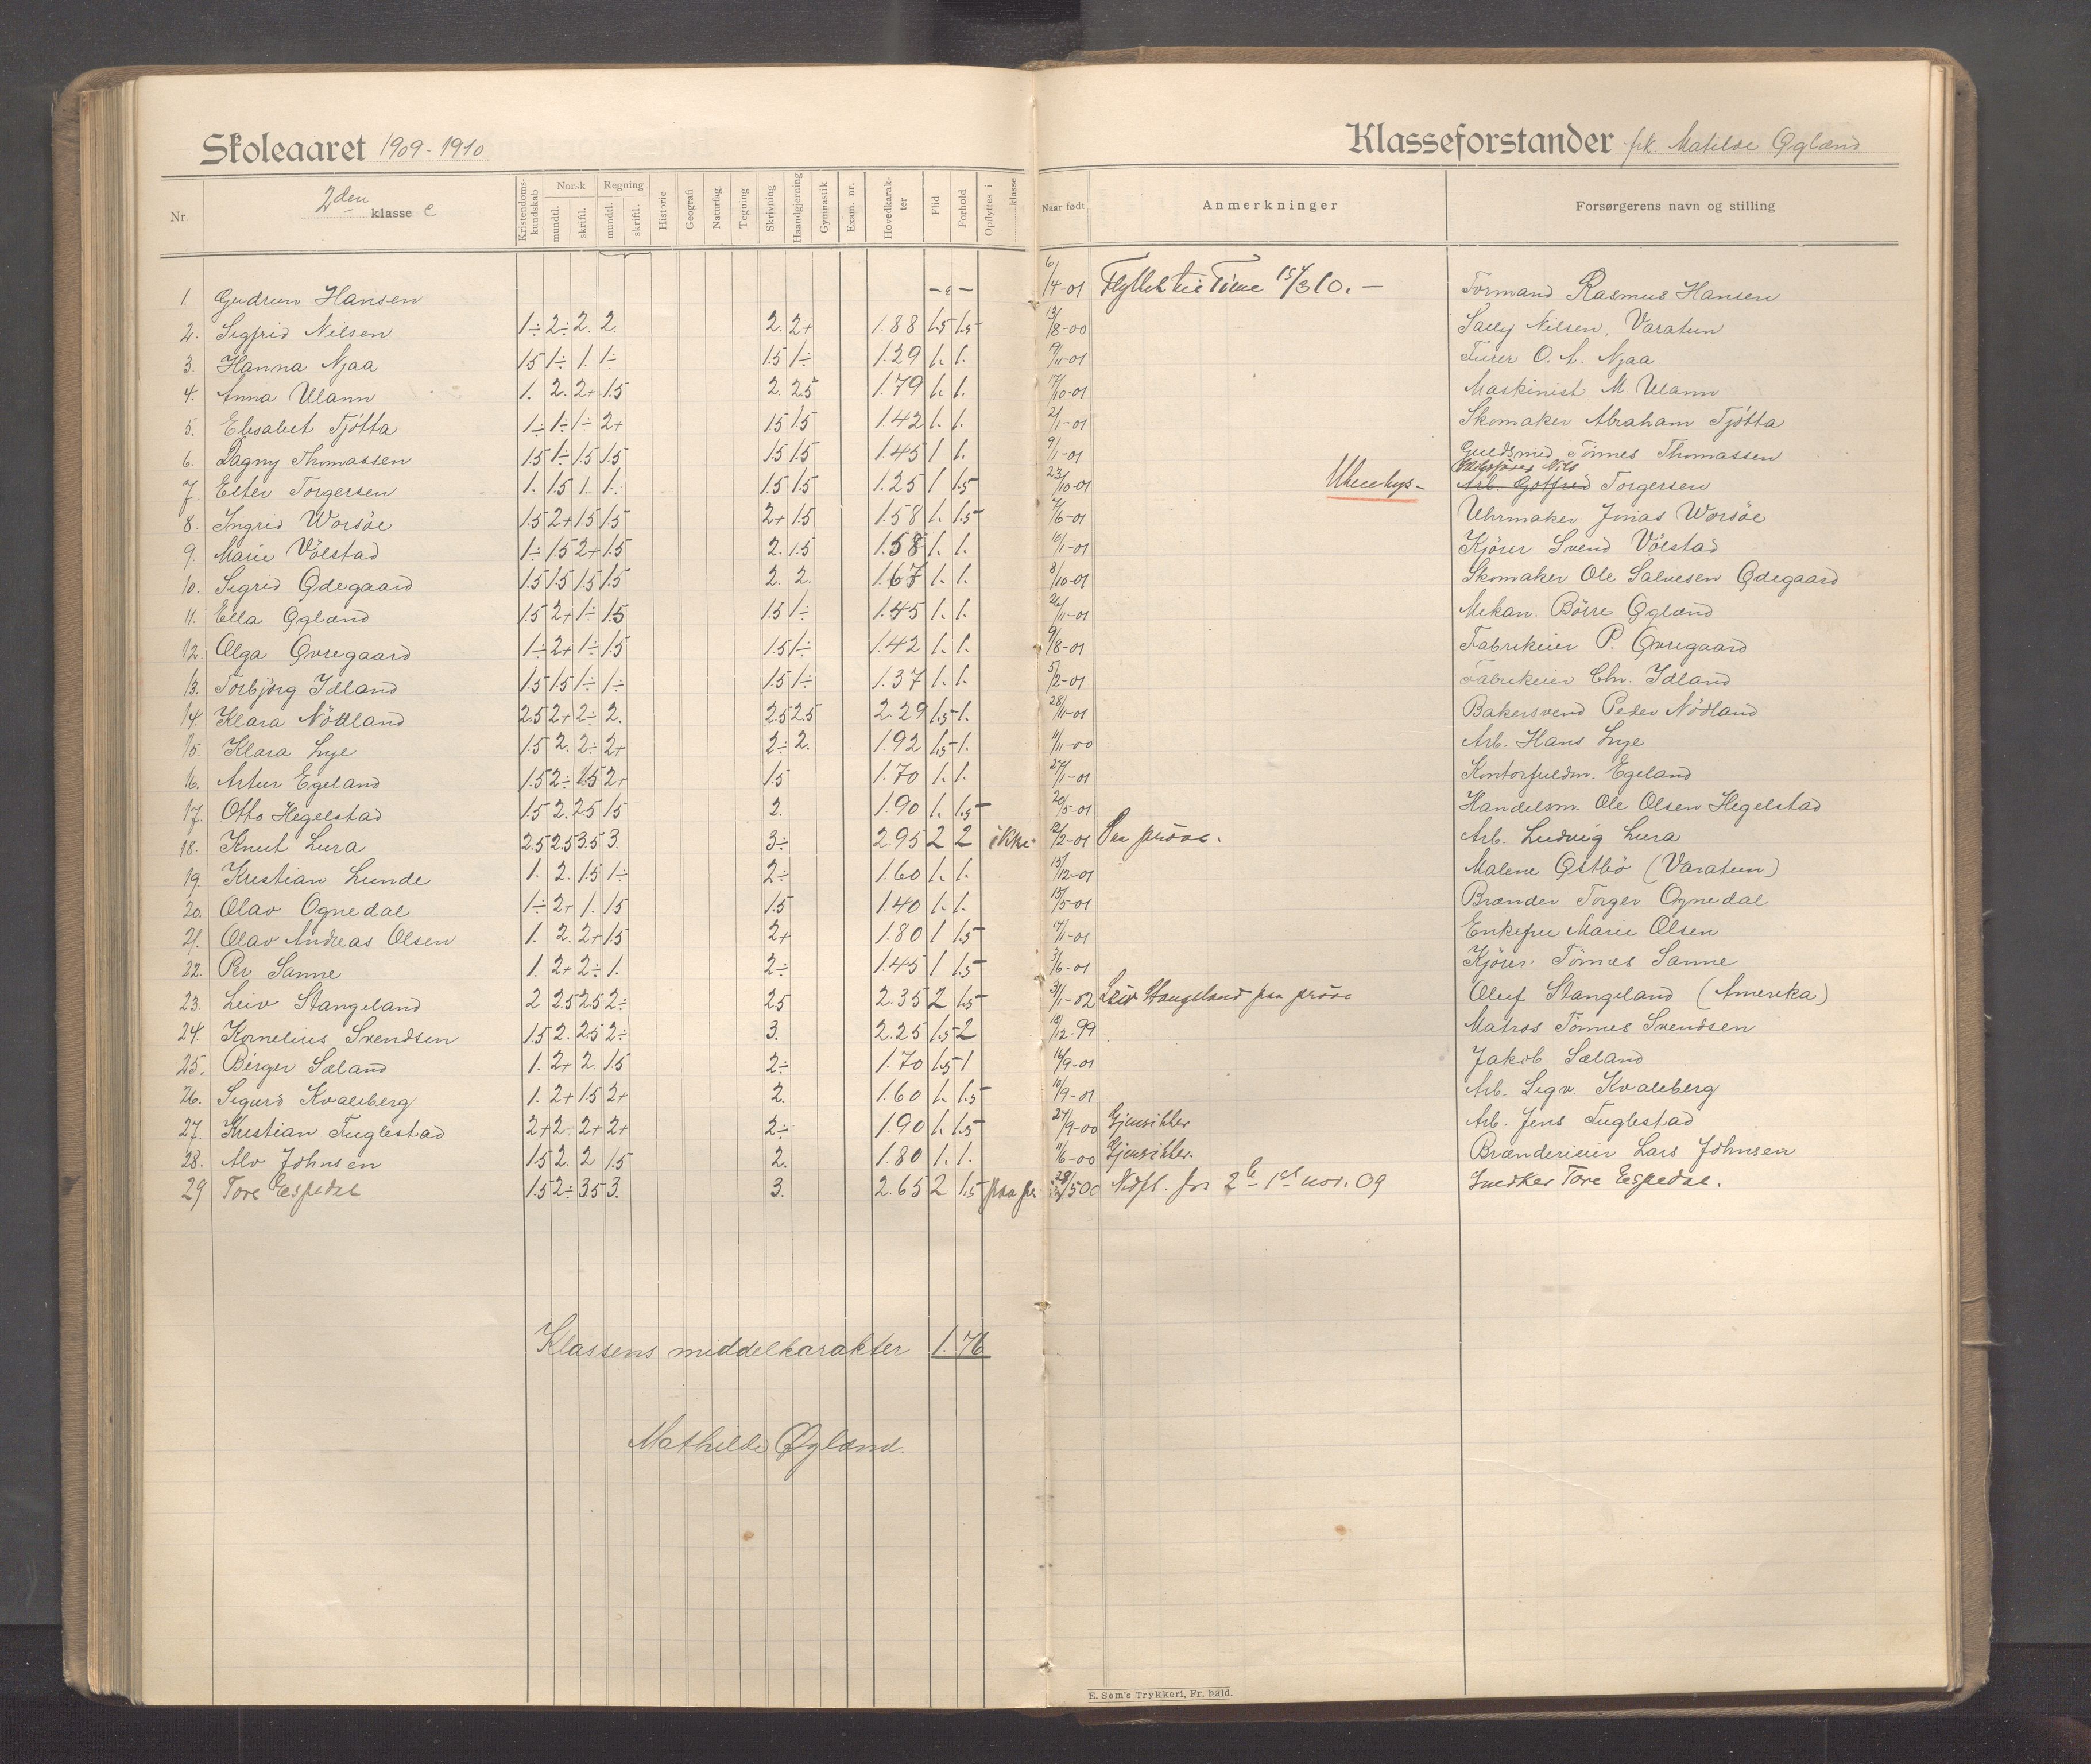 Skoleaaret 1909-1910
Klasseforstander frk. Matilde Øgland
Nr. 2den klasse c Kristendomskundskab Norsk mundtl. skriftl. Regning mundtl. skriftl. Historie Geografi Naturfag Tegning Skrivning Haandgjerning Gymnastik Exam. nr. Hovedkarakter Flid Forhold Opflyttes i klasse Naar født Anmerkninger Forsørgerens navn og stilling
1. Gudrun Hansen 6/4-01 Flyttet til 15/3 10. Formand Rasmus Hansen
2. Sigfrid Nilsen 1÷ 2÷ 2. 2. 2. 2+ 1.88 1.5 1.5 13/8-00 Nilsen, Varatun
3. Hanna Njaa 1.5 1÷ 1. 1÷ 1.5 1÷ 1.29 1. 1. 19/11-01 O. A. Njaa
4. Anna Ulann 1. 2. 2+ 1.5 2. 2.5 1.79 1. 1. 17/10-01 Maskinist M. Ulann
5. Elisabet Tjøtta 1÷ 1÷ 1÷ 2+ 1.5 1.5 1.42 1. 1. 2/1-01 Skomaker Abraham Tjøtta
6. Dagny Thomassen 1.5 1÷ 1.5 1.5 1.5 1.5 1.45 1 1. 9/1-01 Guldsmed Tönnes Thomassen
7. Ester Torgersen 1. 1.5 1. 1. 1.5 1.5 1.25 1 1.5 23/10-01 Nils Arb. Gotfred Torgersen
8. Ingrid Worsöe 1.5 2+ 1.5 1.5 2+ 1.5 1.58 1. 1.5 7/6-01 Uhrmaker Jonas Worsöe
9. Marie Völstad 1÷ 1.5 2+ 1.5 2. 1.5 1.58 1. 1. 10/1-01 Kjörer Svend Völstad
10. Sigrid Ødegaard 1.5 1.5 1.5 1.5 2. 2. 1.67 1. 1. 8/10-01 Skomaker Ole Salvesen Ødegaard
11. Ella Øgland 1.5 2+ 1÷ 1.5 1.5 1÷ 1.45 1. 1. 26/11-01 Mekan. Börre Øgland
12. Olga Øvregaard 1÷ 2+ 1÷ 1.5 1.5 1÷ 1.42 1. 1. 9/8-01 Fabrikeier P. Øvregaard
13. Torbjörg Idland 1.5 1.5 1÷ 1÷ 1.5 1÷ 1.37 1. 1. 5/2-01 Fabrikeier Chr. Idland
14. Klara Nödland 2.5 2+ 2÷ 2. 2.5 2.5 2.29 1.5 1. 28/11-01 Bakersvend Peder Nödland
15. Klara Lye 1.5 2. 2÷ 2+ 2÷ 2. 1.92 1.5 1. 11/11-00 Arb. Hans Lye
16. Artur Egeland 1.5 2÷ 1.5 2+ 1.5 1.70 1. 1. 27/1-01 Kontorfuldm. Egeland
17. Otto Hegelstad 1.5 2. 2.5 1.5 2. 1.90 1. 1.5 20/5-01 Handelsm. Ole Olsen Hegelstad
18. Knut Lura 2.5 2.5 3.5 3. 3÷ 2.95 2 2 ikke 12/2-01 Paa pröve. Arb. Ludvig Lura
19. Kristian Lunde 1. 2. 1.5 1÷ 2÷ 1.60 1. 1. 15/12-01 Malene Østbö (Varatun)
20. Olav Ognedal 1÷ 2+ 1. 1.5 1.5 1.40 1. 1. 15/5-01 Brænder Torger Ognedal
21. Olav Andreas Olsen 1. 2. 2+ 1.5 2+ 1.80 1 1.5 17/1-01 Enkefru Marie Olsen
22. Per Sanne 1. 2+ 2÷ 1. 2÷ 1.45 1 1.5 3/6-01 Kjörer Tönnes Sanne
23. Leiv Stangeland 2 2.5 2.5 2÷ 2.5 2.35 2 1.5 3/1-02 Leiv Stangeland paa pröve Oluf Stangeland (Amerika)
24. Kornelius Svendsen 1.5 2. 2.5 2÷ 3. 2.25 1.5 2 18/12-99 Matros Tönnes Svendsen
25. Birger Sæland 1. 2+ 2. 1.5 2÷ 1.70 1.5 1 16/9-01 Jakob Sæland
26. Sigurd Kvaleberg 1. 2+ 1.5 2+ 2. 1.60 1. 1.5 10/9-01 Arb. Sigv. Kvaleberg
27. Kristian Fuglestad 2+ 2. 2+ 2+ 2÷ 1.90 1. 1.5 27/9-00 Gjensitter Arb. Jens Fuglestad
28. Alv Johnsen 1.5 2. 2 1.5 2. 1.80 1. 1. 11/6-00 Gjensitter. Brænderieier Lars Johnsen
29 Tore Espedal 1.5 2÷ 3.5 3. 3. 2.65 2 1.5 paa pr. 28/5 00 Nedfl. fra 1st nov. 09 Snedker Tore Espedal.
Klassens middelkarakter 1.76
Mathilde Øgland.
E. Søm's Trykkeri, Fr. hald.